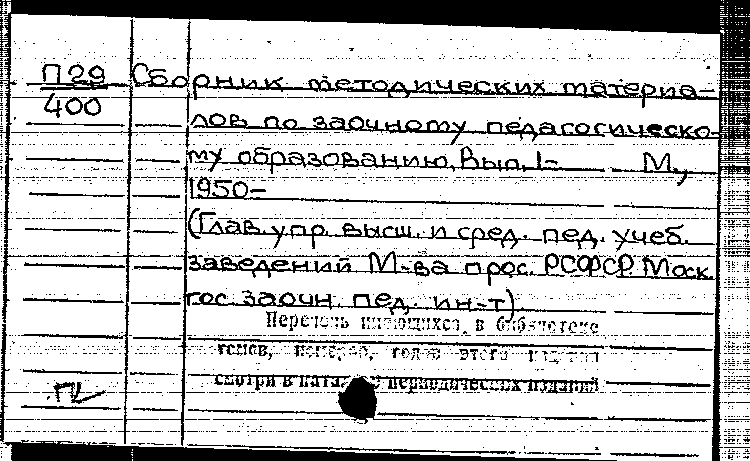 П29
400
Сборник методических материа-
лов по заочному педагогическо-
му образованию. Вып. 1- М.,
1950-
(Глав. упр. высш. и сред. пед. учеб.
заведений М-ва прос. РСФСР. Моск.
гос. заочн. пед. ин-т)
Перечень имеющихся в библиотеке
томов, номеров, годов этого издания
смотри в каталоге периодических изданий